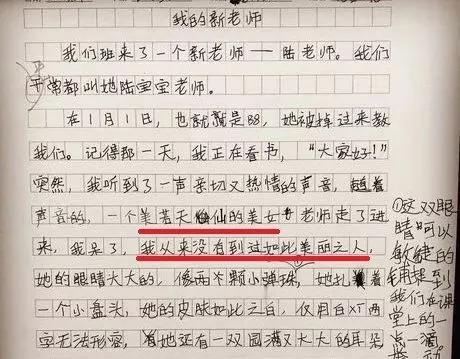 我的新老师
我们班来了一个新老师——陆老师。我们
平常都叫她陆宝宝老师。
在1月1日，也就是88，她被掉过来教
我们。记得那一天，我正在看书，“大家好！”
突然，我听到了一声亲切又热情的声音，随着
声音的，一个美若天仙的美女老师走了进
来，我呆了，我从来没有到过如此美丽之人，
她的眼睛大大的，像两个颗小弹珠，她扎着
一个小盘头，她的皮肤如此之白，仅用白XX两
字无法形容，她还有一双圆满又大大的耳朵
①这双眼
睛可以
敏捷的
捕捉到
我们在课
堂上的一
点一滴。